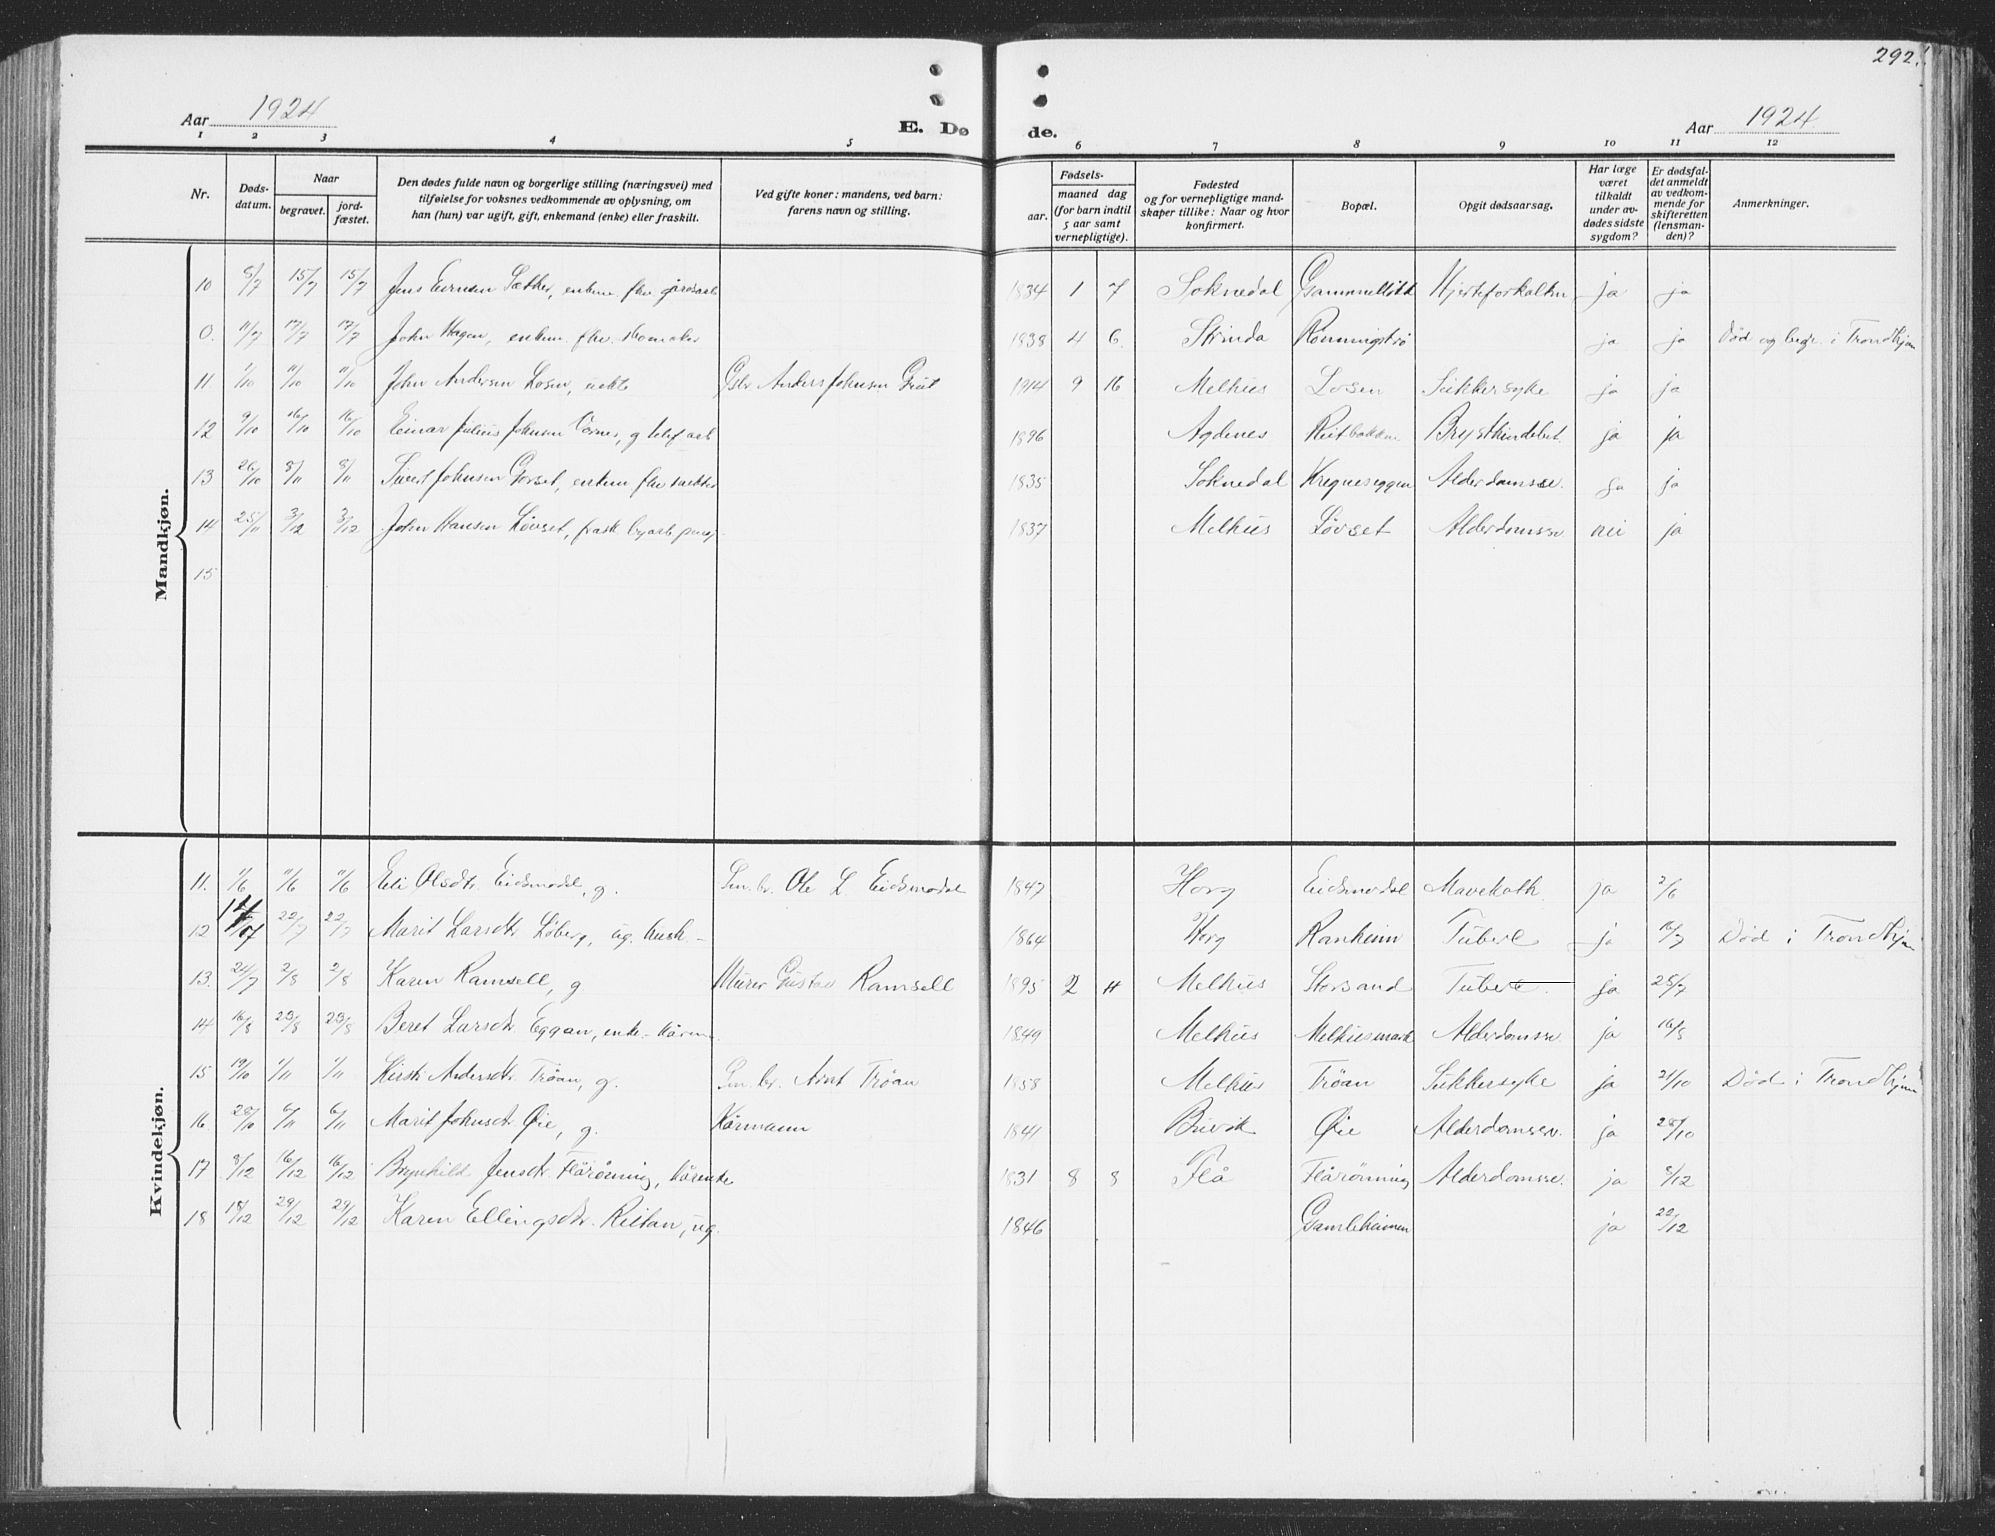 292.
Aar 1924
E. Dø de.
Aar 1924
1 2 3 4 5 6 7 8 9 10 11 12
Nr.
Døds-
datum.
Naar
begravet.
jord-
fæstet.
Den dødes fulde navn og borgerlige stilling (næringsvei) med
tilføielse for voksnes vedkommende av oplysning, om
han (hun) var ugift, gift, enkemand (enke) eller fraskilt.
Ved gifte koner: mandens, ved barn:
farens navn og stilling.
Fødsels-
aar.
maaned dag
(for barn indtil
5 aar samt
vernepligtige).
Fødested
og for vernepligtige mand-
skaper tillike: Naar og hvor
konfirmert.
Bopæl.
Opgit dødsaarsag.
Har læge
været
tilkaldt
under av-
dødes sidste
sygdom?
Er dødsfal-
det anmeldt
av vedkom-
mende for
skifteretten
(lensman-
den)?
Anmerkninger.
Mandkjøn.
10 8/7 15/7 15/7 Jens Sæther, enkem. fhv. 1834 1 7 Soknedal Hjerteforkalkn ja ja
0. 11/7 17/7 17/7 John Hagen, enkem. fhv. 1838 4 6 Strinda ja ja Død og begr. i Trondhjem
11 1/10 11/10 11/10 John Andersen Losen, Anders Johnsen 1914 9 16 Melhus Losen Sukkersyke ja ja
12 9/10 16/10 16/10 Einar Julius Johnsen 1896 Agdenes ja ja
13 26/10 8/11 8/11 Sivert Johnsen Gorset, enkem fhv 1835 Soknedal Alderdomssv. ja ja
14 25/11 3/12 3/12 John Hansen Løvset, 1837 Melhus Løvset Alderdomssv nei ja
15
Kvindekjøn.
11. 1/6 11/6 11/6 Eli Olsdtr. Eidsmodal, g. Ole L. Eidsmodal 1847 Horg Eidsmodal ja 2/6
12 14/07 22/7 22/7 Marit Larsdtr Løberg, ug. 1864 Horg Ranheim Tuberk ja 16/7 Død i Trondhjem
13. 24/7 2/8 2/8 Karen Ramsell, g Murer Gustav Ramsell 1895 2 Melhus Storsand Tuberk. ja 25/7
14 16/8 23/8 23/8 Beret Larsdtr. Eggan, enke 1849 Melhus Melhusmark Alderdomssv. ja 16/8
15 19/10 1/11 1/11 Kirsti Andersdtr. Trøan, g. Arnt Trøan 1858 Melhus Trøan Sukkersyke ja 21/10 Død i Trondhjem
16 28/10 6/11 6/11 Marit Johnsdtr Øie, g. Kårmann 1841 Buvik Øie Alderdomssv. ja 28/10
17 8/12 16/12 16/12 Brynhild Jensdtr Flårønning, kårenke 1831 8 8 Flå Flårønning Alderdomssv. ja 8/12
18 18/12 29/12 29/12 Karen Ellingsdtr. Reitan, ug. 1846 Gamleheimen ja 22/12